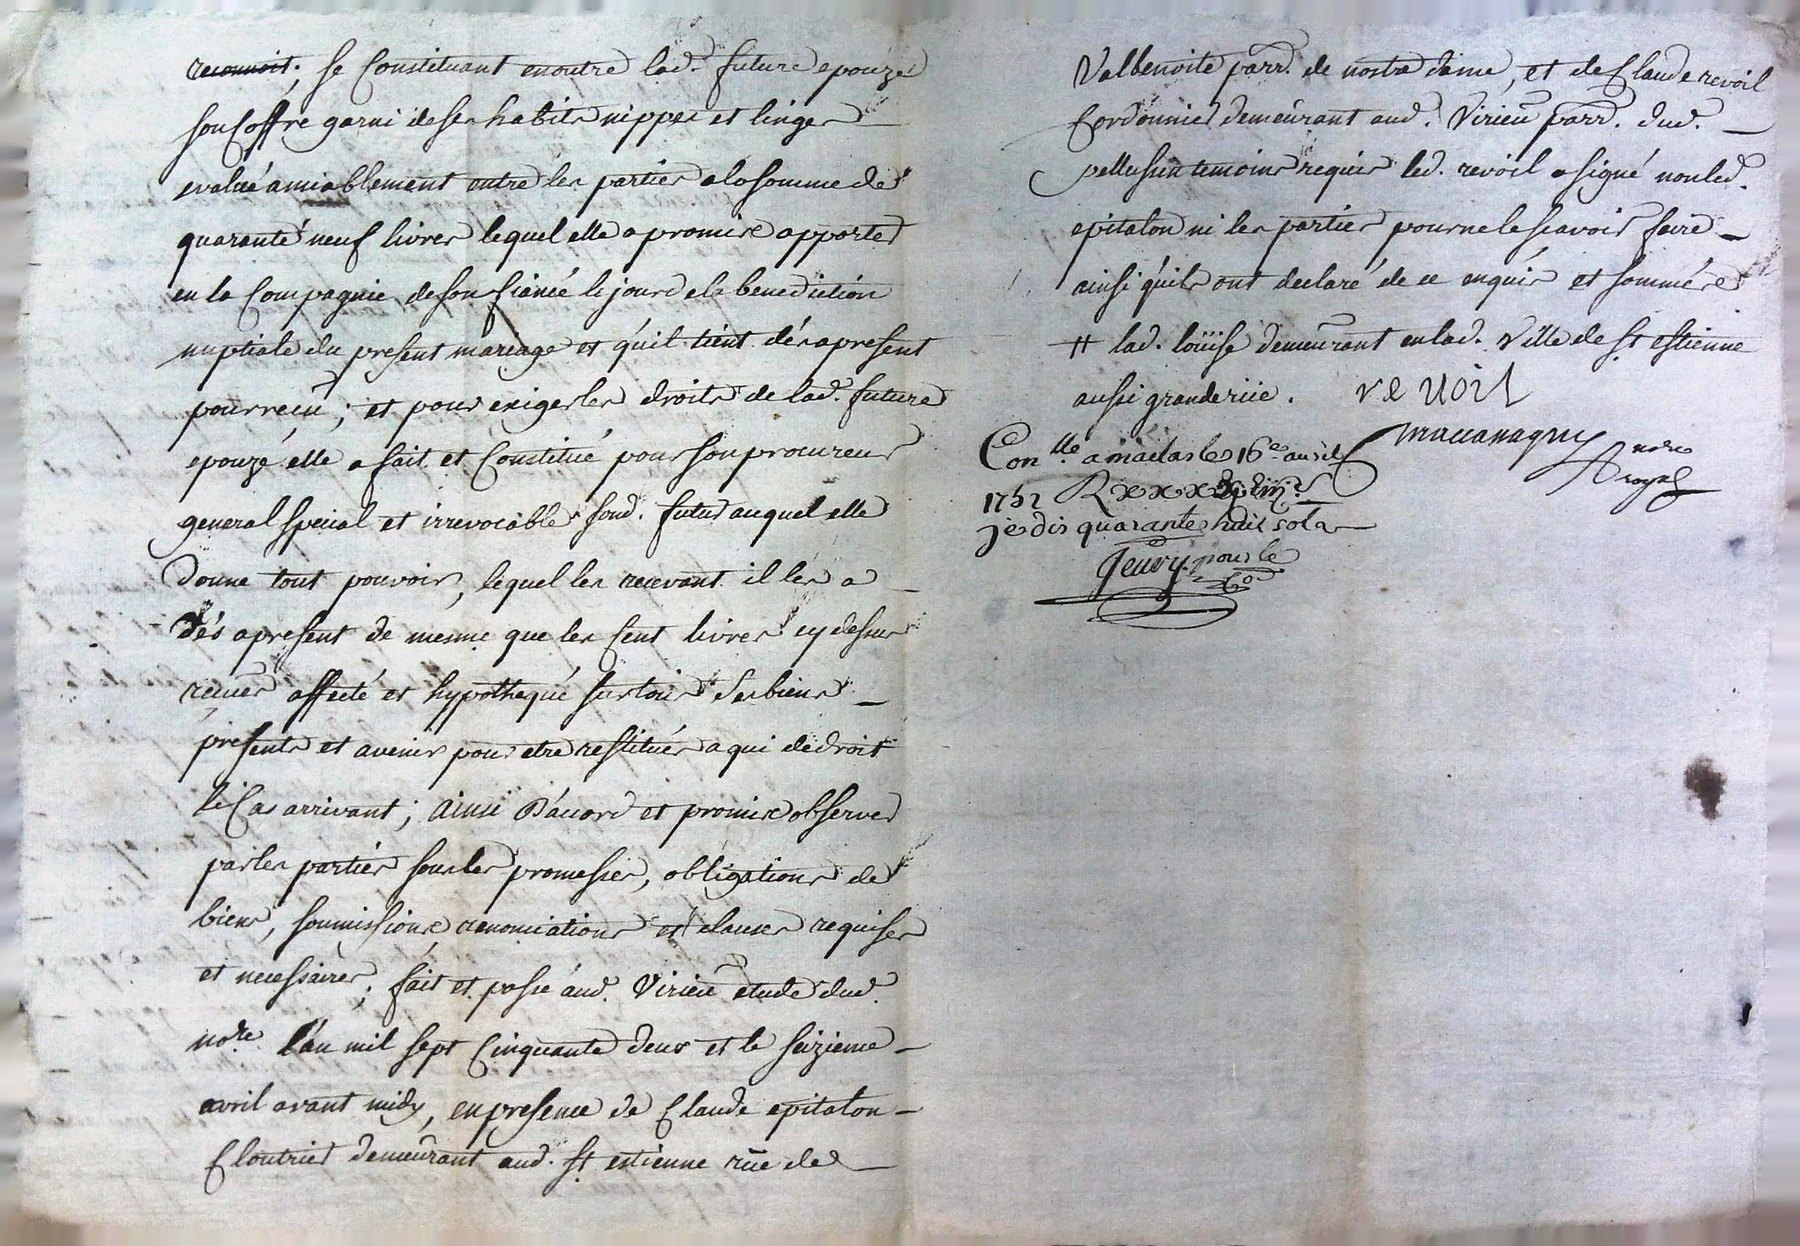 reconnoit ; se Constituant enoutre lad. future epouze
son Coffre garni de ses habits nippes et linges
evalué amiablement entre les parties a la somme de
quarante neuf livres lequel elle a promis apporter
en la Compagnie de son fiancé le jour de la benediction
nuptiale du present mariage et qu'il tient dés apresent
pour recu ; et pour exiger les droits de lad. future
epouze elle a fait et Constitué pour son procureur
general special et irrevocable sond. futur auquel elle
donne tout pouvoir, lequel les recevant il les a
dés apresent de mesme que les Cent livres cy dessus
recues affecté et hypothequé sur tous ses biens
presents et avenir pour etre restitués a qui de droit
le Cas arrivant ; ainsi d'acord et promis observer
par les parties sous les promesses, obligations de
biens, soumissions, renonciations et clauses requises
et necessaires ; fait et passé aud. Virieu etude dud.
nore. l'an mil sept Cinquante deux et le seizieme
avril avant midy, en presence de Claude epitalon
Cloutrier demeurant aud. St estienne rue de
Valbenoite parr. de nostre dame, et de Claude revoil
Cordonnier demeurant aud. Virieu parr. dud.
pellussin temoins requis led. revoil a signé non led.
epitalon ni les parties pour ne le scavoir faire
ainsi qu'ils ont declaré de ce enquis et sommés
# lad. loüise demeurant en lad. Ville de St estienne
aussi grande rüe . revoil
Conlle a maclas le 16e avril
1752 R
je dis quarante huit sols
pour le
nore
royal